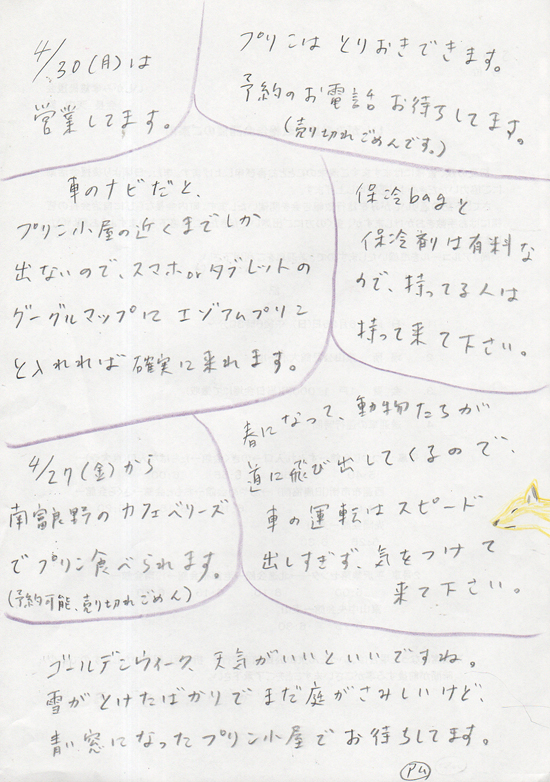 4/30(月)は
営業してます。
プリンはとりおきできます。
予約のお電話お待ちしてます。
(売り切れごめんです。)
車のナビだと、
プリン小屋の近くまでしか
出ないので、スマホorタブレットの
グーグルマップにエゾアムプリン
と入れれば確実に来れます。
保冷bagと
保冷剤は有料な
ので、持ってる人は
持って来て下さい。
4/27(金)から
南富良野のカフェベリーズ
でプリン食べられます。
(予約可能、売り切れごめん)
春になって、動物たちが
道に飛び出してくるので、
車の運転はスピード
出しすぎず、気をつけて
来て下さい。
ゴールデンウィーク、天気がいいといいですね。
雪がとけたばかりでまだ庭がさみしいけど、
青い窓になったプリン小屋でお待ちしてます。
アム